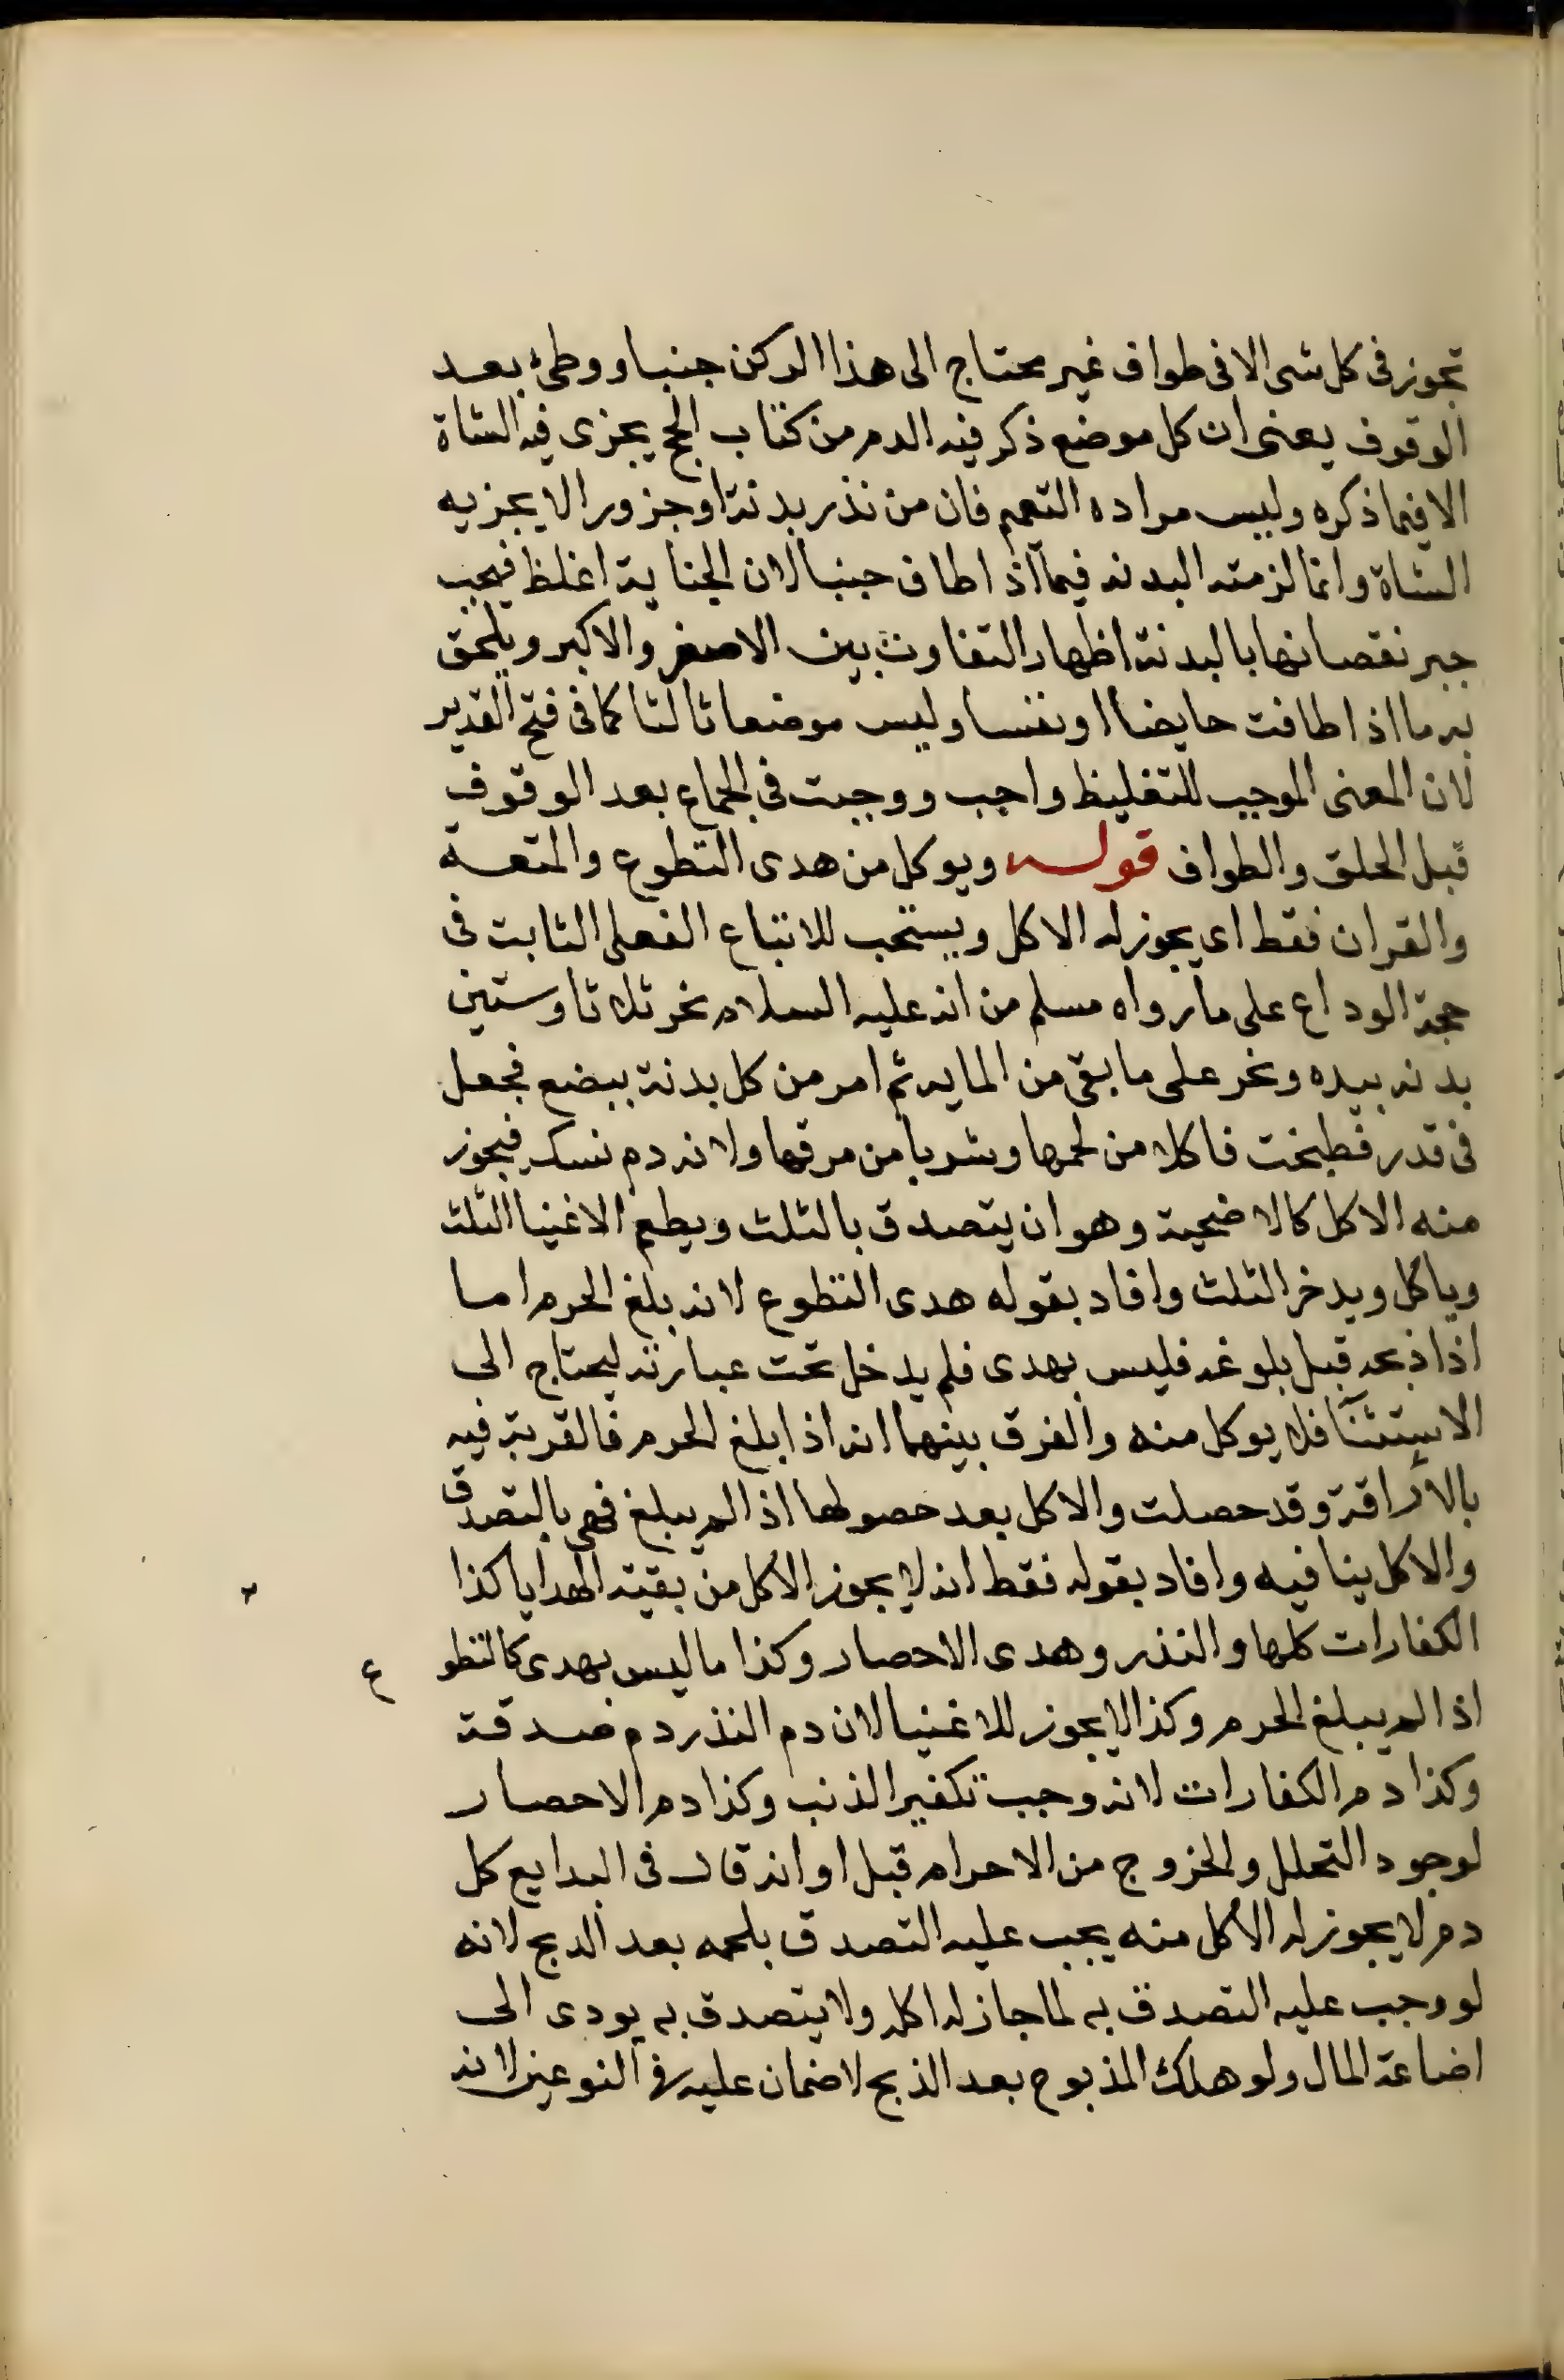 تجوز فى كل شى الا فى طواف غير محتاج الى هذا الركن جنبا ووطئ بعد
الوقوف يعنى ان كل موضع ذكر فيه الدم من كتاب الحج يجزى فيه الشاة
الا فيما ذكره وليس مراده التعميم فان من نذر بدنة او جزورا لا يجزيه
الشاة وانما لزمته البدنه فيما اذا طاف جنبا لان الجناية اغلظ فيجب
جبر نقصانها بالبدنة اظهار التفاوت بين الاصغر والاكبر ويلحق
به ما اذا طافت حايضا او نفسا وليس موضعا ثالثا كما فى فتح القدير
لان المعنى الموجب للتغليظ واحب ووجبت فى الجماع بعد الوقوف
قبل الحلق والطواف قوله ويوكل من هدى التطوع والمتعة
والقران فقط اى يجوز له الاكل ويستحب للاتباع الفعلى الثابت فى
حجة الوداع على ما رواه مسلم من انه عليه السلام نحر ثلاثا وستين
بدنه بيده ونحر على ما بقى من المايه ثم امر من كل بدنة ببضع فجعل
فى قدر فطبخت فاكلا من لحمها وشربا من مرقها ولانه دم نسك فيجوز
منه الاكل كالاضحية وهو ان يتصدق بالثلث ويطعم الاغنيا الثلث
وياكل ويدخر الثلث وافاد بقوله هدى التطوع لانه بلغ الحرم اما
اذا ذبحه قبل بلوغه فليس بهدى فلم يدخل تحت عبارته ليحتاج الى
الاستثنآ فلا يوكل منه والفرق بينهما انه اذا بلغ الحرم فالقربة فيه
بالاراقة وقد حصلت والاكل بعد حصولها اذا لم يبلغ فهى بالتصدق
والاكل ينافيه وافاد بقوله فقط انه لا يجوز الاكل من بقية الهدايا كذا
الكفارات كلها والنذر وهدى الاحصار وكذا ما ليس بهدى كالتطوع
اذا لم يبلغ الحرم وكذا لا يجوز للاغنيا لان دم النذر دم صدقة
وكذا دم الكفارات لانه وجب تكفير الذنب وكذا دم الاحصار
لوجود التحلل والخروج من الاحرام قبل اوانه قال فى البدايع كل
دم لا يجوز له الاكل منه يجب عليه التصدق بلحمه بعد الدبح لانه
لو وجب عليه التصدق به لما جاز له اكله ولا يتصدق به يودى الى
اضاعة المال ولو هلك المذبوح بعد الذبح لا ضمان عليه فى النوعين لانه